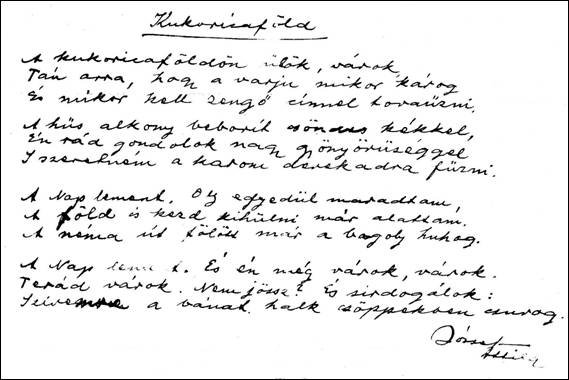 Kukoricaföld
A kukoricaföldön ülök, várok,
Tán arra, hogy a varju mikor károg
És mikor kell zengő címmel tovaüzni.
A hüs alkony beborít csöndes kékkel,
Én rád gondolok nagy gyönyörüséggel
S szeretném a karom derekadra füzni.
A Nap lement. Oly egyedül maradtam,
A föld is kezd kihülni már alattam.
A néma út fölött már a bagoly huhog.
A Nap lement. És én még várok, várok.
Terád várok. Nem jössz? És sirdogálok:
Szivemre a bánat halk cöppekben csurog.
József
Attila